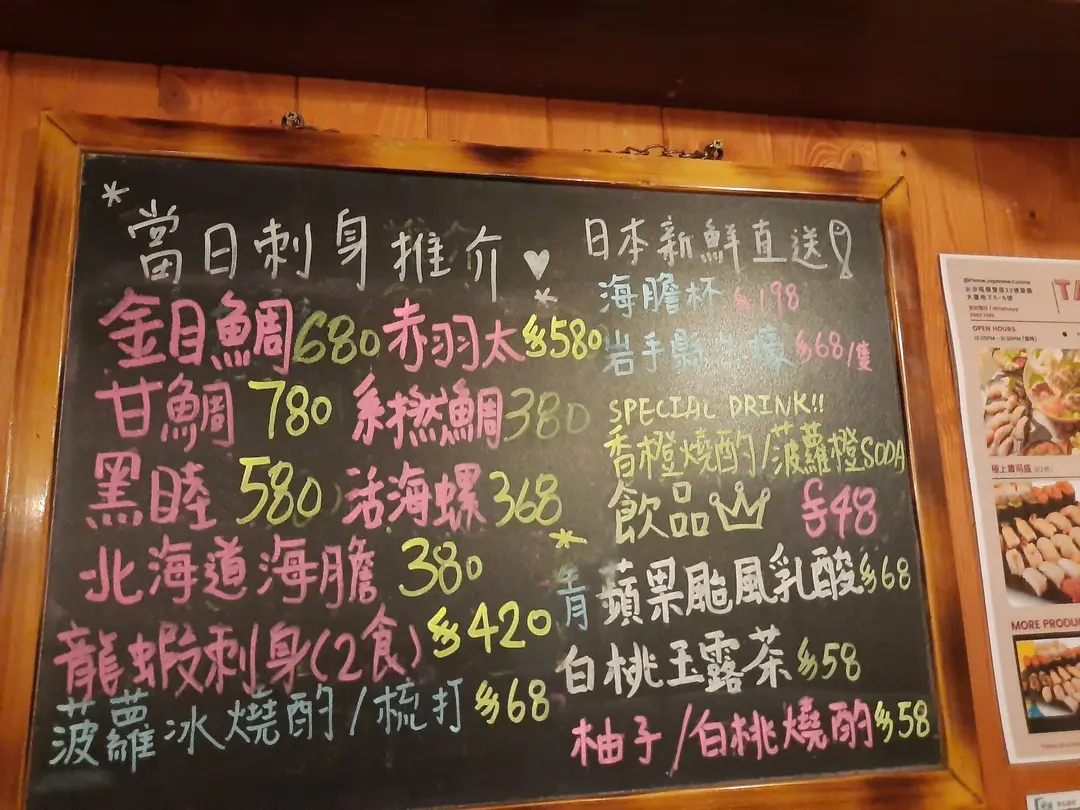 當日刺身推介♡
金目鯛680 赤羽太$580
甘鯛 780 糸撚鯛380
黑睦 580 活海螺368
北海道海膽 380
龍蝦刺身(2食) $420
菠蘿冰燒酌/梳打 $68
日本新鮮直送
海膽杯 $198
岩手縣 蠔 $68/隻
SPECIAL DRINK!!
香橙燒酌/菠蘿橙SODA
飲品 $48
青蘋果颱風乳酸$68
白桃玉露茶$58
柚子/白桃燒酌$58
大廈地下5-6號
OPEN HOURS
極上壽司盛
MORE PRODU